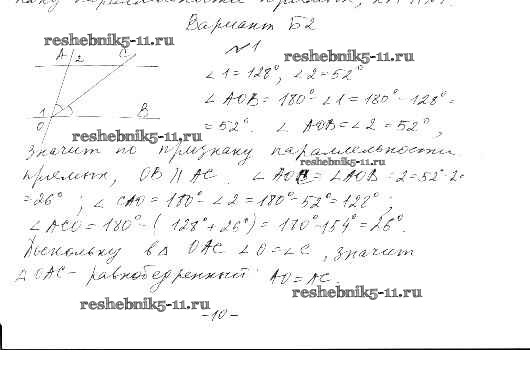 Вариант Б2
reshebnik5-11.ru
№1
reshebnik5-11.ru
A 2 C
∠1 = 128°, ∠2 = 52°
∠AOB = 180° - ∠1 = 180° - 128° =
1 B
O
reshebnik5-11.ru
= 52°. ∠AOB = ∠2 = 52°,
Значит по признаку параллельности
reshebnik5-11.ru
прямых, OB || AC. ∠AOC = ∠AOB : 2 = 52° : 2 =
= 26°; ∠CAO = 180° - ∠2 = 180° - 52° = 128°;
∠ACO = 180° - (128° + 26°) = 180° - 154° = 26°.
Поскольку в Δ OAC ∠O = ∠C, значит
Δ OAC - равнобедренный AO = AC.
reshebnik5-11.ru
reshebnik5-11.ru
-10-